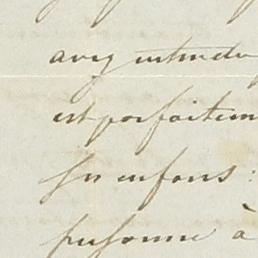 avez entendu
est parfaitem
ses enfans :
personne à